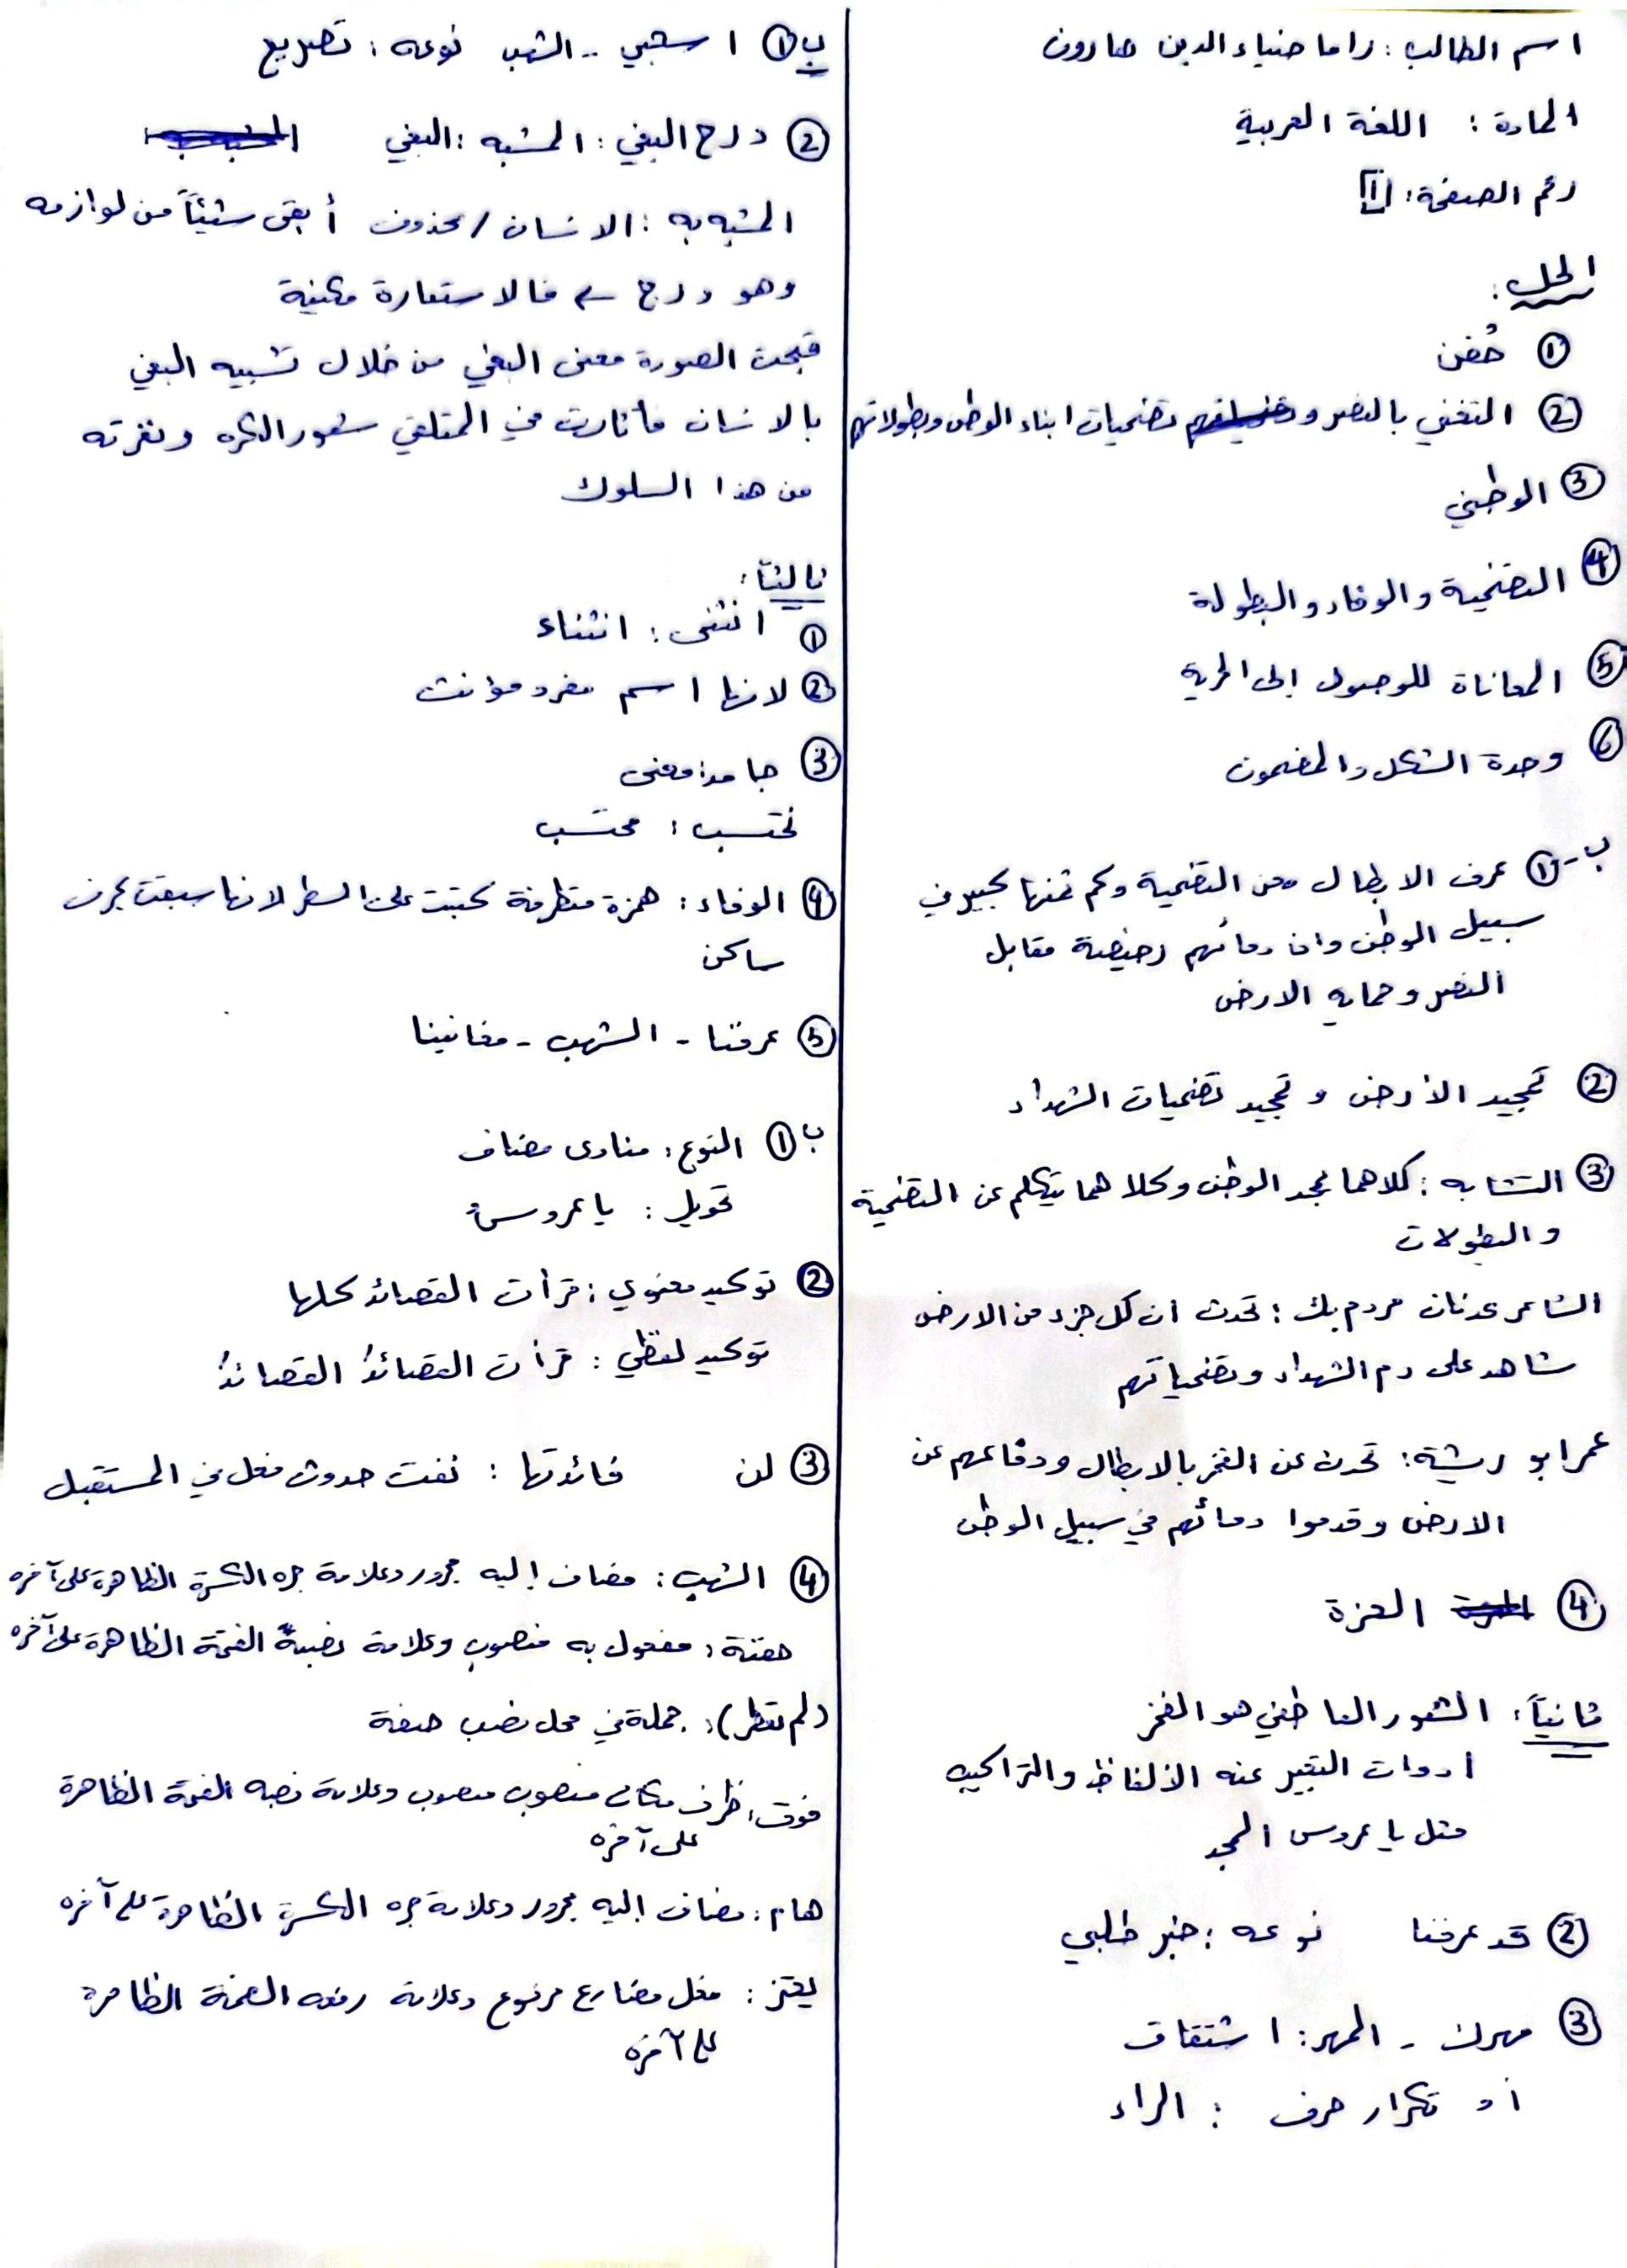 اسم الطالب: راما ضياء الدين هارون
المادة: اللغة العربية
رقم الصفحة: [1]
الحل:
① حُفن
② التغني بالنصر و تضحيات ابناء الوطن وبطولاتهم
③ الوطني
④ التضحية والوفاء والبطولة
⑤ المعاناة للوصول إلى الحرية
⑥ وحدة الشكل والمضمون
ب- ① عرف الابطال معن التضحية وكم ثمنها كبير في
سبيل الوطن وان دمائهم رخيصة مقابل
النصر وحماية الارض
② تمجيد الأرض و تمجيد تضحيات الشهداء
③ التشابه: كلاهما مجد الوطن وكلاهما يتكلم عن التضحية
والبطولات
الشاعر عدنان مردم بك: تحدث ان كل جزء من الارض
شاهد على دم الشهداء وتضحياتهم
عمر ابو ريشة: تحدث عن الفخر بالابطال ودفاعهم عن
الارض وقدموا دمائهم في سبيل الوطن
④ العزة
ثانياً: الشعور العاطفي هو الفخر
ادوات التعبير عنه الألفاظ والتراكيب
مثل يا عروس المجد
② قد عرفنا نوعه: خبر طلبي
③ مهرك - المهر: اشتقاق
أو تكرار حرف: الراء
ب ① اسحبي - الشهب نوعه: تصريع
② درج البغي: المشبه: البغي
المشبه به: الانسان / محذوف أبقى شيئاً من لوازمه
وهو درج فالاستعارة مكنية
قبحت الصورة معنى البغي من خلال تشبيه البغي
بالانسان فأثارت في المتلقي شعور الكره ونفرته
من هذا السلوك
ثالثاً:
① انثنى: انثناء
② لانها اسم مفرد مؤنث
③ جامد: معنى
نحتسب: محتسب
④ الوفاء: همزة متطرفة كتبت على السطر لانها سبقت بحرف
ساكن
⑤ عرفتنا - الشهب - مغانينا
ب ① النوع: منادى مضاف
تحويل: يا عروسُ
② توكيد معنوي: قرأت القصائد كلها
توكيد لفظي: قرأت القصائدَ القصائدَ
③ لن فائدتها: نفت حدوث فعل في المستقبل
④ الشهبِ: مضاف إليه مجرور وعلامة جره الكسرة الظاهرة على آخره
حفنة: مفعول به منصوب وعلامة نصبه الفتحة الظاهرة على آخره
(لم تعطر): جملة في محل نصب صفة
فوق: ظرف مكان منصوب منصوب وعلامة نصبه الفتحة الظاهرة
على آخره
هام: مضاف إليه مجرور وعلامة جره الكسرة الظاهرة على آخره
يعتز: فعل مضارع مرفوع وعلامة رفعه الضمة الظاهرة
على آخره